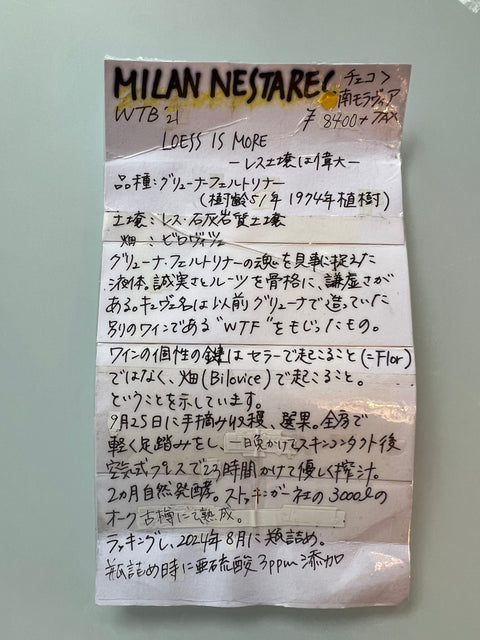 MILAN NESTAREC
チェコ>
南モラヴィア
WTB '21
¥8400+TAX
LOESS IS MORE
ーレス土壌は偉大ー
品種:グリューナーフェルトリナー
(樹齢51年 1974年植樹)
土壌:レス・石灰岩質土壌
畑:ビロヴィツェ
グリューナ・フェルトリナーの魂を見事に捉えた
液体。誠実さとルーツを骨格に、謙虚さが
ある。キュヴェ名は以前グリューナで造っていた
別のワインである"WTF"をもじったもの。
ワインの個性の鍵はセラーで起こること(=Flor)
ではなく、畑(Bilovice)で起こること。
ということを示しています。
9月25日に手摘み収穫、選果。全房で
軽く足踏みをし、一晩かけてスキンコンタクト後
空気式プレスで23時間かけて優しく搾汁。
2カ月自然発酵。ストッキンガー社の3000ℓの
オーク古樽にて熟成。
ラッキングし、2024年8月に瓶詰め。
瓶詰め時に亜硫酸3ppm添加